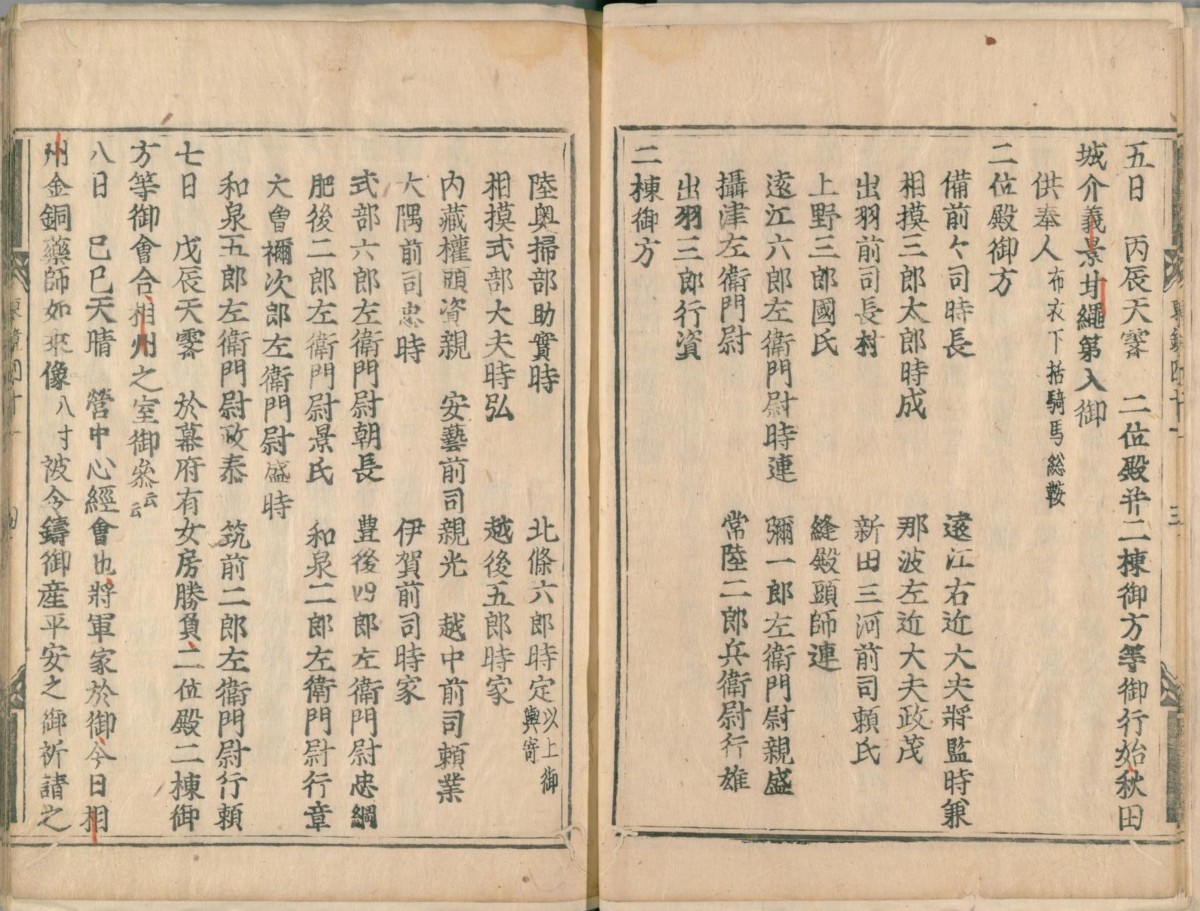 五日　丙辰天霽　二位殿并二棟御方等御行始秋田
城介義景甘繩第入御
供奉人布衣下括騎馬総鞍
二位殿御方
備前々司時長　遠江右近大夫將監時兼
相摸三郎太郎時成　那波左近大夫政茂
出羽前司長村　新田三河前司頼氏
上野三郎國氏　縫殿頭師連
遠江六郎左衛門尉時連　彌一郎左衛門尉親盛
攝津左衛門尉　常陸二郎兵衛尉行雄
出羽三郎行資
二棟御方
陸奥掃部助實時　北條六郎時定以上御輿寄
相摸式部大夫時弘　越後五郎時家
内藏權頭資親　安藝前司親光　越中前司頼業
大隅前司忠時　伊賀前司時家
式部六郎左衛門尉朝長　豊後四郎左衛門尉忠綱
肥後二郎左衛門尉景氏　和泉二郎左衛門尉行章
和泉五郎左衛門尉政泰　筑前二郎左衛門尉行頼
大曾禰次郎左衛門尉盛時
七日　戊辰天霽　於幕府有女房勝負二位殿二棟御
方等御會合相州之室御參云云
八日　己巳天晴　營中心經會也將軍家於御今日相
州金銅藥師如來像八寸被令鑄御産平安之御祈諸之